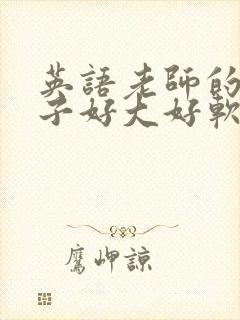 英語老師的
子好大好軟
鷹岬諒